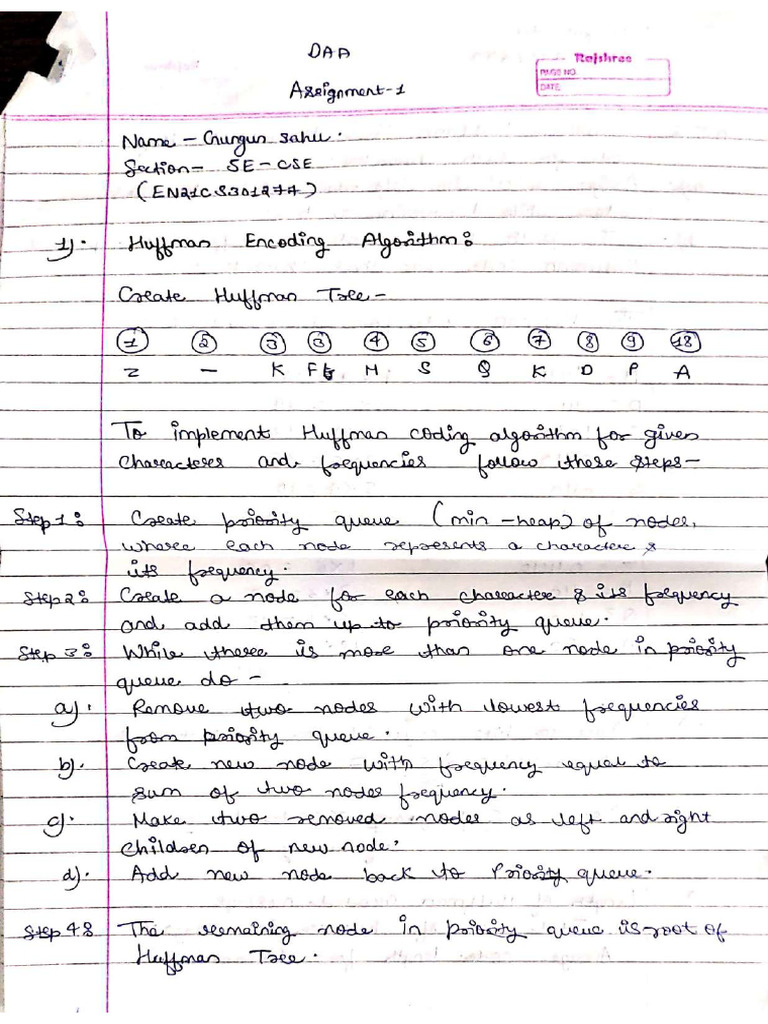 DAA
Rajshree
PAGE NO.
DATE
Assignment-1
Name - Gungun Sahu.
Section - 5E - CSE
(EN21CS301277)
1). Huffman Encoding Algorithm:
Create Huffman Tree -
1 2 3 3 4 5 6 7 8 9 18
Z - K F H S Q K D P A
To implement Huffman coding algorithm for given
characters and frequencies follow these steps-
Step 1: Create priority queue (min-heap) of nodes,
where each node represents a character &
its frequency.
Step 2: Create a node for each character & its frequency
and add them up to priority queue.
Step 3: While there is more than one node in priority
queue do -
a). Remove two nodes with lowest frequencies
from priority queue.
b). Create new node with frequency equal to
sum of two nodes frequency.
c). Make two removed nodes as left and right
children of new node.
d). Add new node back to Priority queue.
Step 4: The remaining node in priority queue is root of
Huffman Tree.